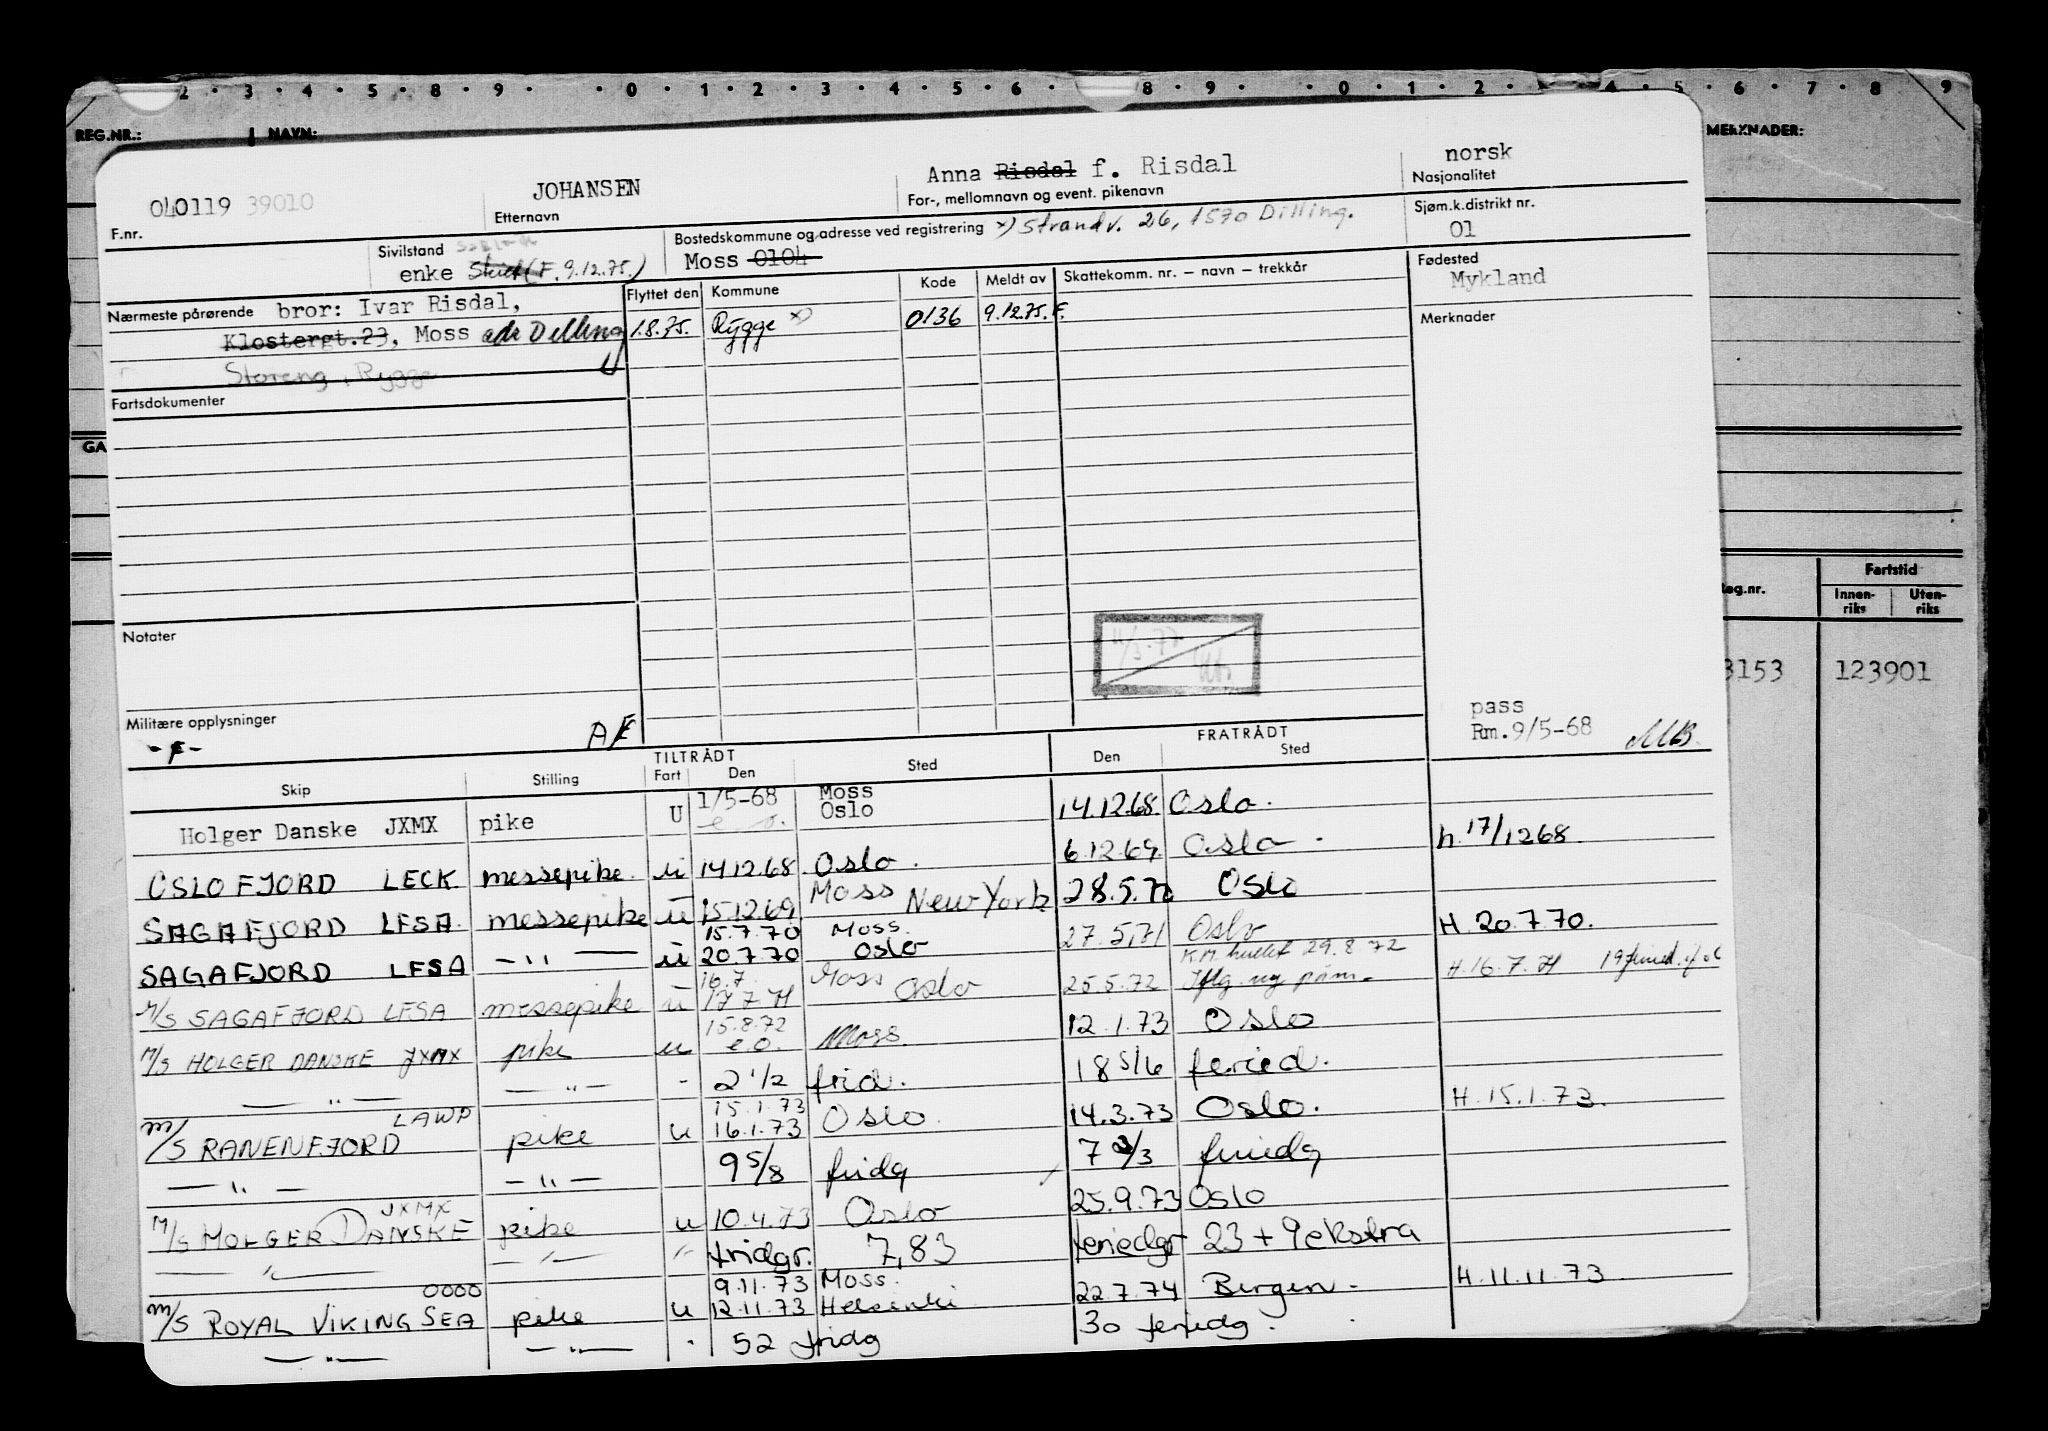 2 · 3 · 4 · 5 · 8 · 9 · · 0 · 1 · 2 · 3 · 4 · 5 · 6 · 8 · 9 · · 0 · 1 · 2 · 4 · 5 · 6 · 7 · 8 9
REG.NR.: NAVN: MERKNADER:
040119 39010 JOHANSEN Anna Risdal f. Risdal norsk
F.nr. Etternavn For-, mellomnavn og event. pikenavn Nasjonalitet
Sivilstand Bostedskommune og adresse ved registrering x) Strandv. 26, 1570 Dilling. Sjøm.k.distrikt nr.
enke (F. 9.12.75.) Moss 0104 01
Nærmeste pårørende bror: Ivar Risdal, Flyttet den Kommune Kode Meldt av Skattekomm. nr. – navn – trekkår Fødested
Mykland
Klostergt.23, Moss adr Dilling 1.8.75. Rygge x) 0136 9.12.75.F. Merknader
Storeng, Rygge
Fartsdokumenter
GA
Fartstid
Reg.nr. Innen-riks Uten-riks
Notater 11/3-77
3153 123901
Militære opplysninger pass
- F - AF Rm.9/5-68 MB.
TILTRÅDT FRATRÅDT
Skip Stilling Fart Den Sted Den Sted
Holger Danske JXMX pike U 1/5-68 e.o. Moss Oslo 14.12.68. Oslo.
OSLOFJORD LECK messepike. u 14.12.68 Oslo. 6.12.69. Oslo. h. 17/12 68.
SAGAFJORD LFSA. messepike u 15.12.69. Moss New York 28.5.70 Oslo
SAGAFJORD LFSA — " — u 15.7.70 20.7.70 Moss. Oslo 27.5.71 Oslo H. 20.7.70.
M/S SAGAFJORD LFSA messepike u 16.7. 17.7.71 Moss Oslo 25.5.72 K.M. hullet 29.8.72 Iflg. ny påm. H.16.7.71
M/S HOLGER DANSKE JXMX pike u 15.8.72 e.o. Moss. 12.1.73 Oslo
— " — — " — - 2 1/2 frid. 18 5/6 feried.
M/S RANENFJORD LAWP pike u 15.1.73 16.1.73 Oslo. 14.3.73 Oslo. H. 15.1.73.
— " — — " — 9 5/8 fridg 7 2/3 feriedg
M/S HOLGER DANSKE JXMX pike u 10.4.73 Oslo 25.9.73 Oslo
— " — — " — " fridgr. 7,83 feriedgr 23 + 9 ekstra
M/S ROYAL VIKING SEA 0000 pike u 9.11.73 12.11.73 Moss. Helsinki 22.7.74 Bergen. H.11.11.73.
— " — — " — 52 fridg 30 feriedg.